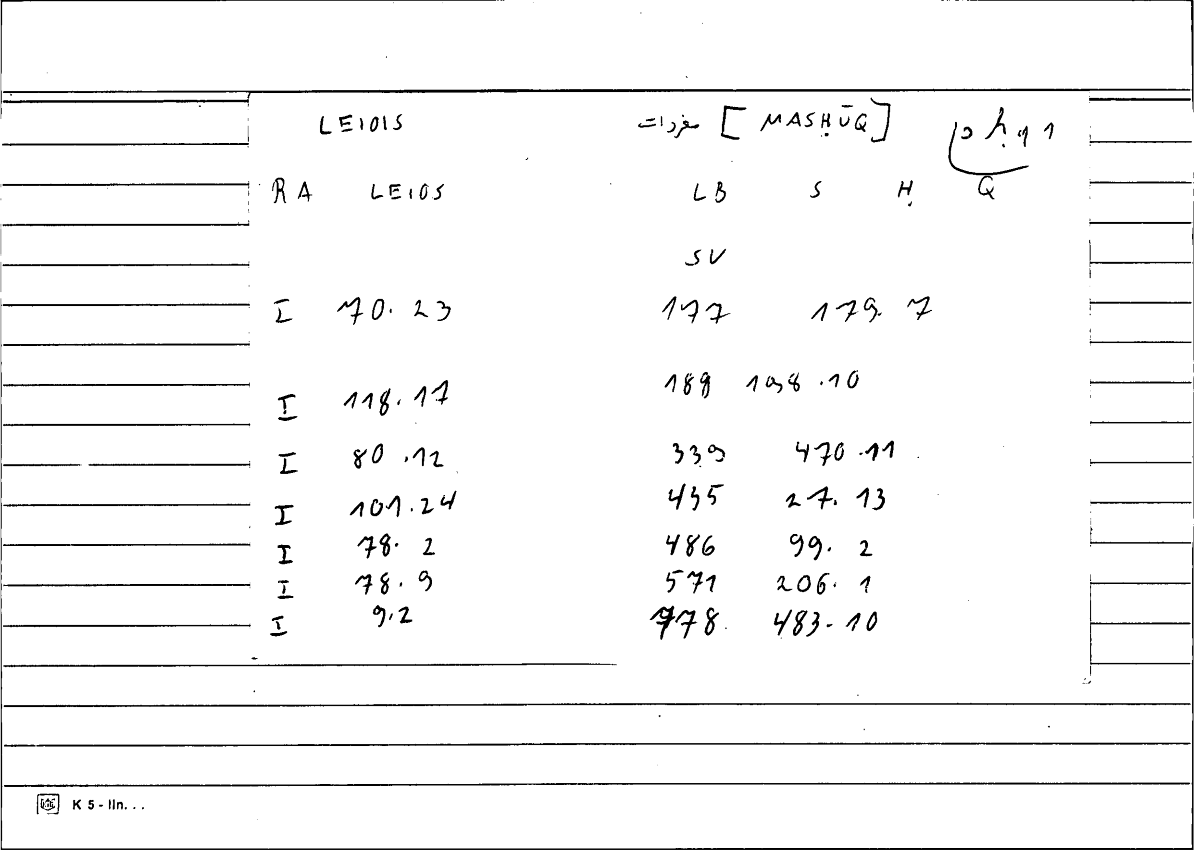 LEIOIS مفردات [MASḤŪQ]
RA LEIOS LB S Ḥ Q
SV
I 70.23 177 179.7
I 118.17 189 198.10
I 80.12 339 470.11
I 101.24 435 27.13
I 78.2 486 99.2
I 78.9 571 206.1
I 9.2 778 483.10
K 5 - lln. . .